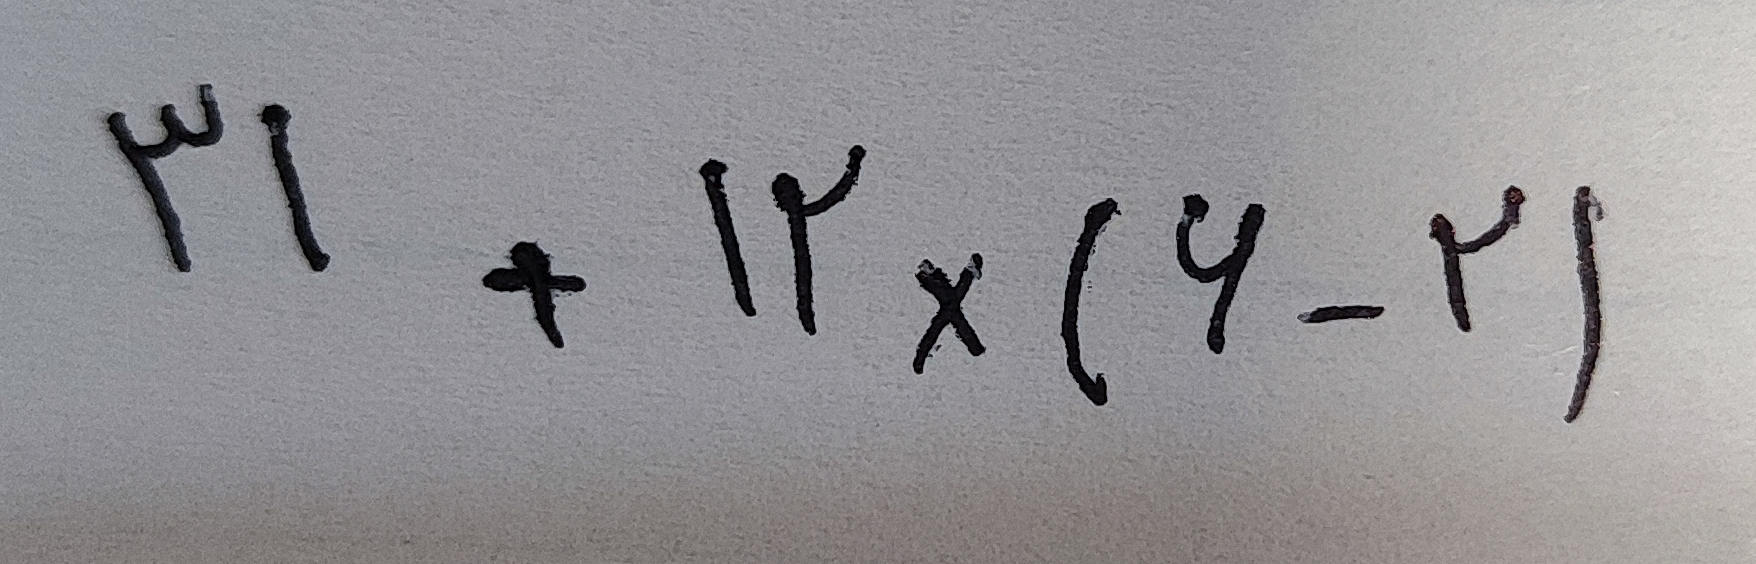 ۳۱ + ۱۲ × (۶ - ۲)